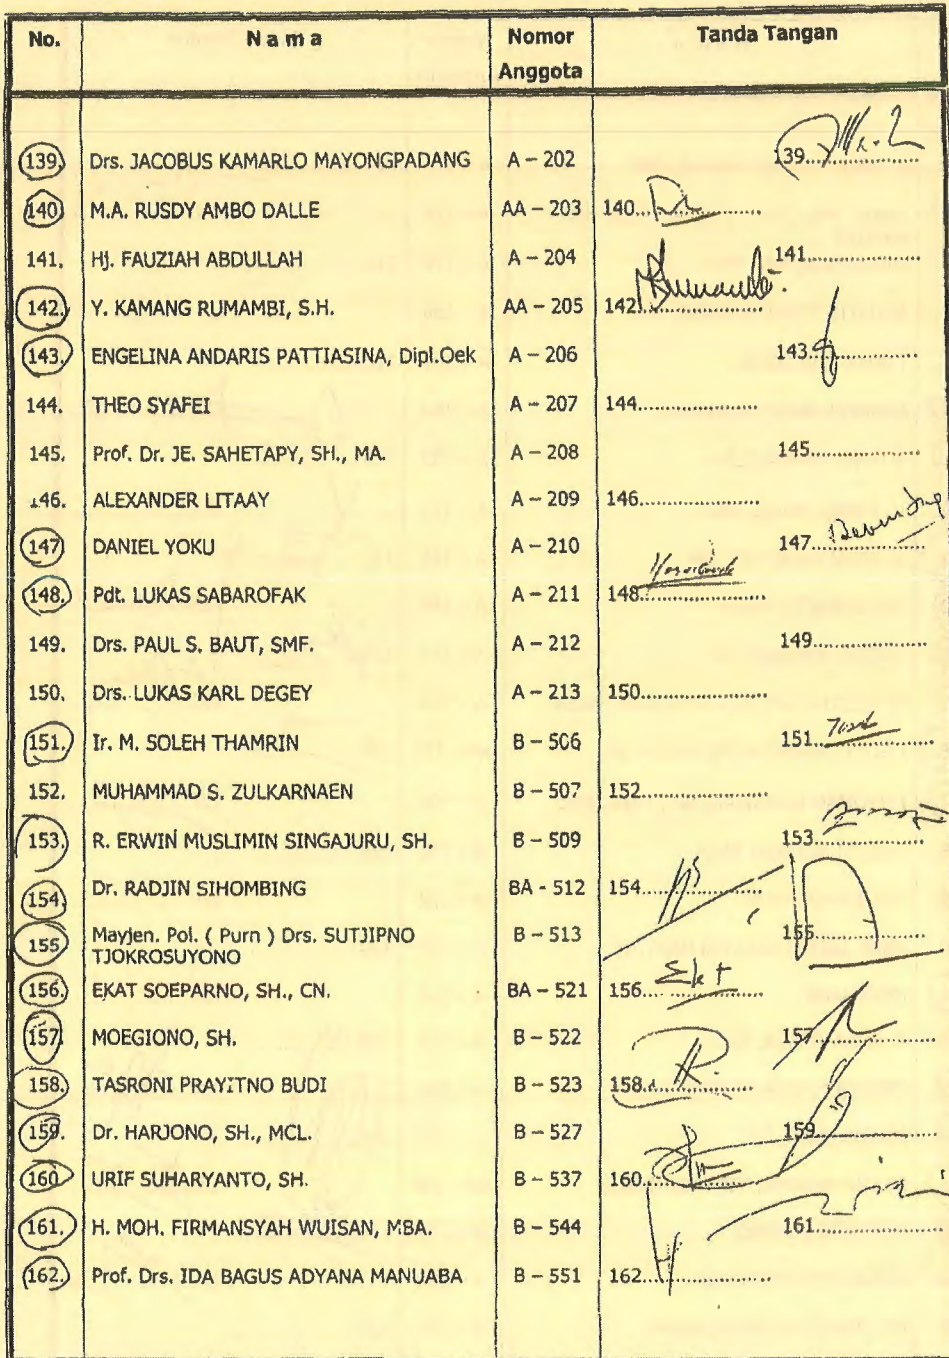 No. Nama Nomor Anggota Tanda Tangan
139. Drs. JACOBUS KAMARLO MAYONGPADANG A – 202 139....................
140. M.A. RUSDY AMBO DALLE AA – 203 140....................
141. Hj. FAUZIAH ABDULLAH A – 204 141....................
142. Y. KAMANG RUMAMBI, S.H. AA – 205 142....................
143. ENGELINA ANDARIS PATTIASINA, Dipl.Oek A – 206 143....................
144. THEO SYAFEI A – 207 144....................
145. Prof. Dr. JE. SAHETAPY, SH., MA. A – 208 145....................
146. ALEXANDER LITAAY A – 209 146....................
147. DANIEL YOKU A – 210 147....................
148. Pdt. LUKAS SABAROFAK A – 211 148....................
149. Drs. PAUL S. BAUT, SMF. A – 212 149....................
150. Drs. LUKAS KARL DEGEY A – 213 150....................
151. Ir. M. SOLEH THAMRIN B – 506 151....................
152. MUHAMMAD S. ZULKARNAEN B – 507 152....................
153. R. ERWIN MUSLIMIN SINGAJURU, SH. B – 509 153....................
154. Dr. RADJIN SIHOMBING BA - 512 154....................
155 Mayjen. Pol. ( Purn ) Drs. SUTJIPNO B – 513 155....................
TJOKROSUYONO
156. EKAT SOEPARNO, SH., CN. BA – 521 156.... Ekt
157. MOEGIONO, SH. B – 522 157....................
158. TASRONI PRAYITNO BUDI B – 523 158....................
159. Dr. HARJONO, SH., MCL. B – 527 159....................
160 URIF SUHARYANTO, SH. B – 537 160....................
161. H. MOH. FIRMANSYAH WUISAN, MBA. B – 544 161....................
162. Prof. Drs. IDA BAGUS ADYANA MANUABA B – 551 162....................